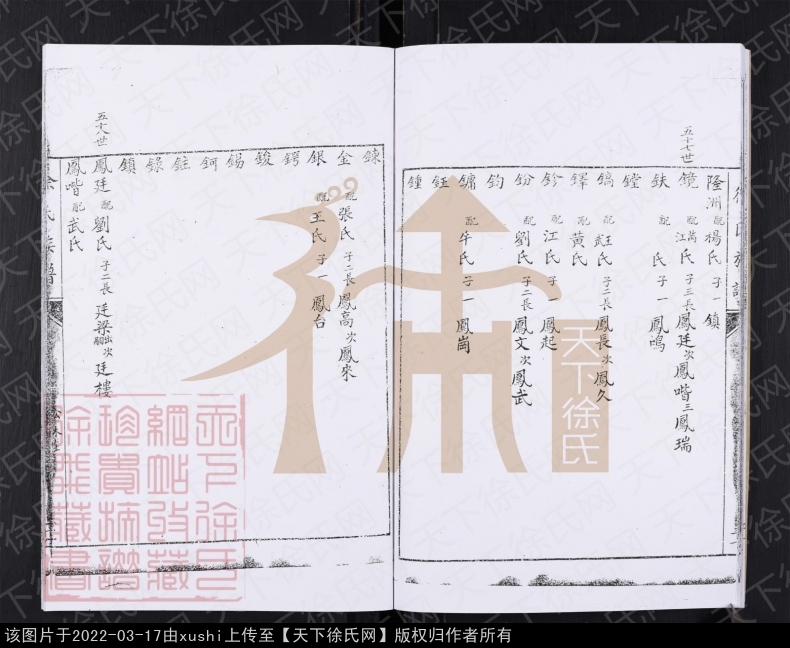 五十七世
隆洲 配楊氏 子一 鎮
鏡 配萬江氏 子三長鳳廷次鳳喈三鳳瑞
鈇 配 氏 子一 鳳鳴
鏜
鎬 配王武氏 子二長鳳長次鳳久
鐸 配黃氏
鈐 配江氏 子一 鳳起
鈖 配劉氏 子二長鳳文次鳳武
鈞
鏞 配牟氏 子一 鳳崗
鈺
鍾
徐氏族譜
鍊
金 配張氏 子二長鳳高次鳳來
銀 配王氏 子一 鳳台
鍔
鋑
錫
鈳
錄
鎮
五十八世
鳳廷 配劉氏 子二長廷梁出嗣次廷樓
鳳喈 配武氏
徐氏族譜
天下徐氏
天下徐氏
網站收藏
珍貴族譜
徐氏藏書
天下徐氏网
该图片于2022-03-17由xushi上传至【天下徐氏网】版权归作者所有